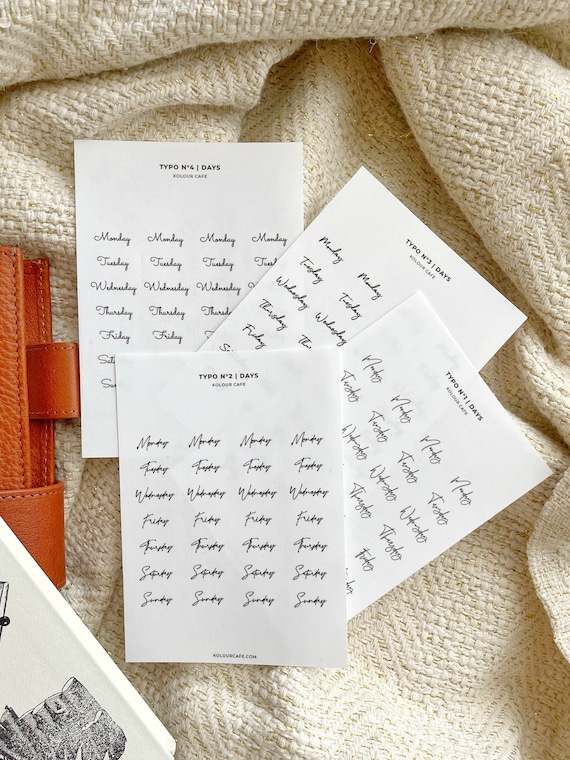 TYPO Nº4 | DAYS
KOLOUR CAFE
Monday Monday Monday Monday
Tuesday Tuesday Tuesday
Wednesday Wednesday Wednesday
Thursday Thursday
Friday Friday
TYPO Nº3 | DAYS
KOLOUR CAFE
Monday Monday
Tuesday Tuesday
Wednesday Wednesday
Thursday
Friday
TYPO Nº2 | DAYS
KOLOUR CAFE
Monday Monday Monday Monday
Tuesday Tuesday Tuesday Tuesday
Wednesday Wednesday Wednesday Wednesday
Friday Friday Friday Friday
Thursday Thursday Thursday Thursday
Saturday Saturday Saturday Saturday
Sunday Sunday Sunday Sunday
KOLOURCAFE.COM
TYPO Nº1 | DAYS
KOLOUR CAFE
Monday Monday Monday Monday
Tuesday Tuesday Tuesday Tuesday
Wednesday Wednesday Wednesday
Thursday Thursday
Friday